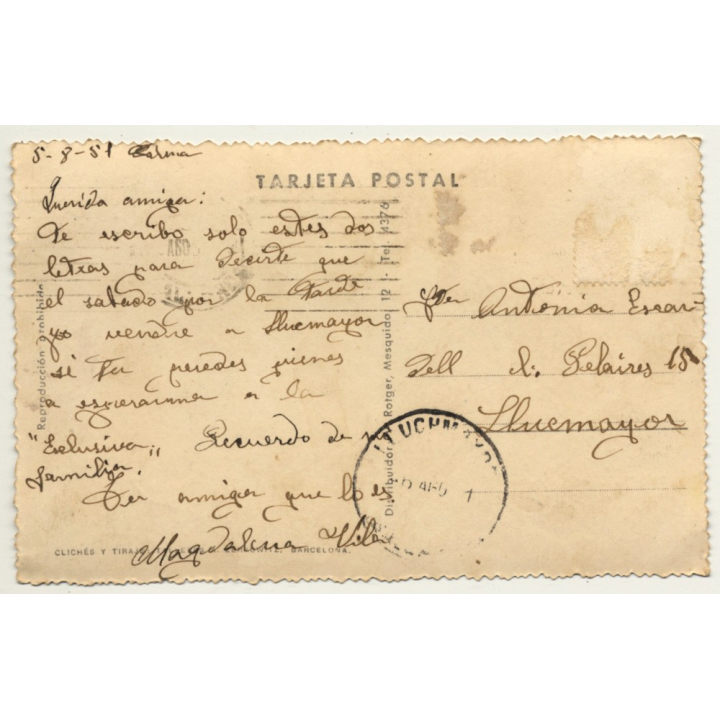 5-8-51 Palma
TARJETA POSTAL
Querida amiga:
Te escribo solo estes dos
letras para decirte que
el sabado por la tarde
yo vendre a Llucmayor
si tu puedes vienes
a esperarme a la
"Exclusiva" Recuerdo de
familia.
Tu amiga que lo es
Magdalena Vila
Antonia Escar-
dell
Pelaires 15
Llucmayor
Reproducción prohibida
Distribuidor Rotger, Mesquida, 12 - Tel. 4376
CLICHÉS Y BARCELONA.
LLUCHMAYOR
AGO